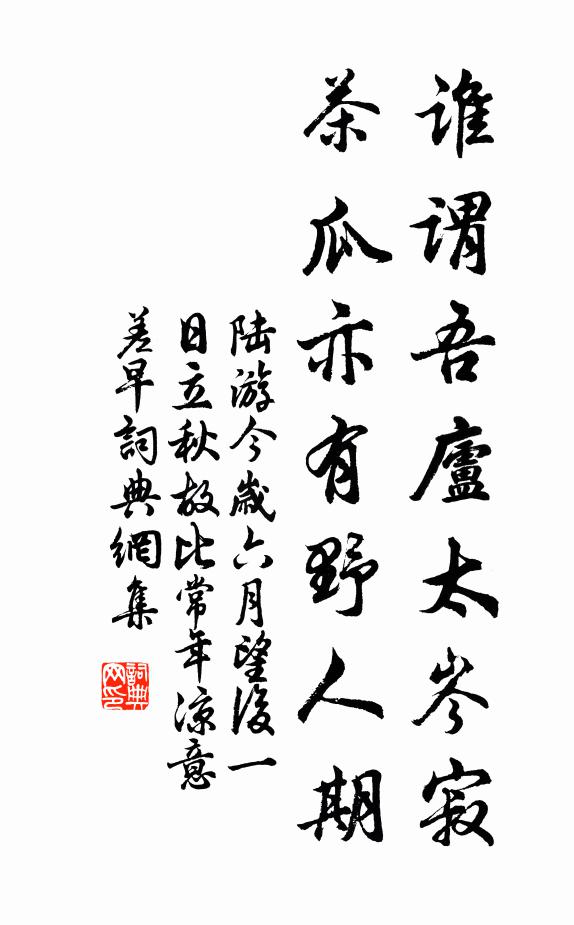 誰謂吾廬太岑寂
茶瓜亦有野人期
陆游今歲六月望後一
日立秋故比常年凉意
差早詞典網集
詞典网印